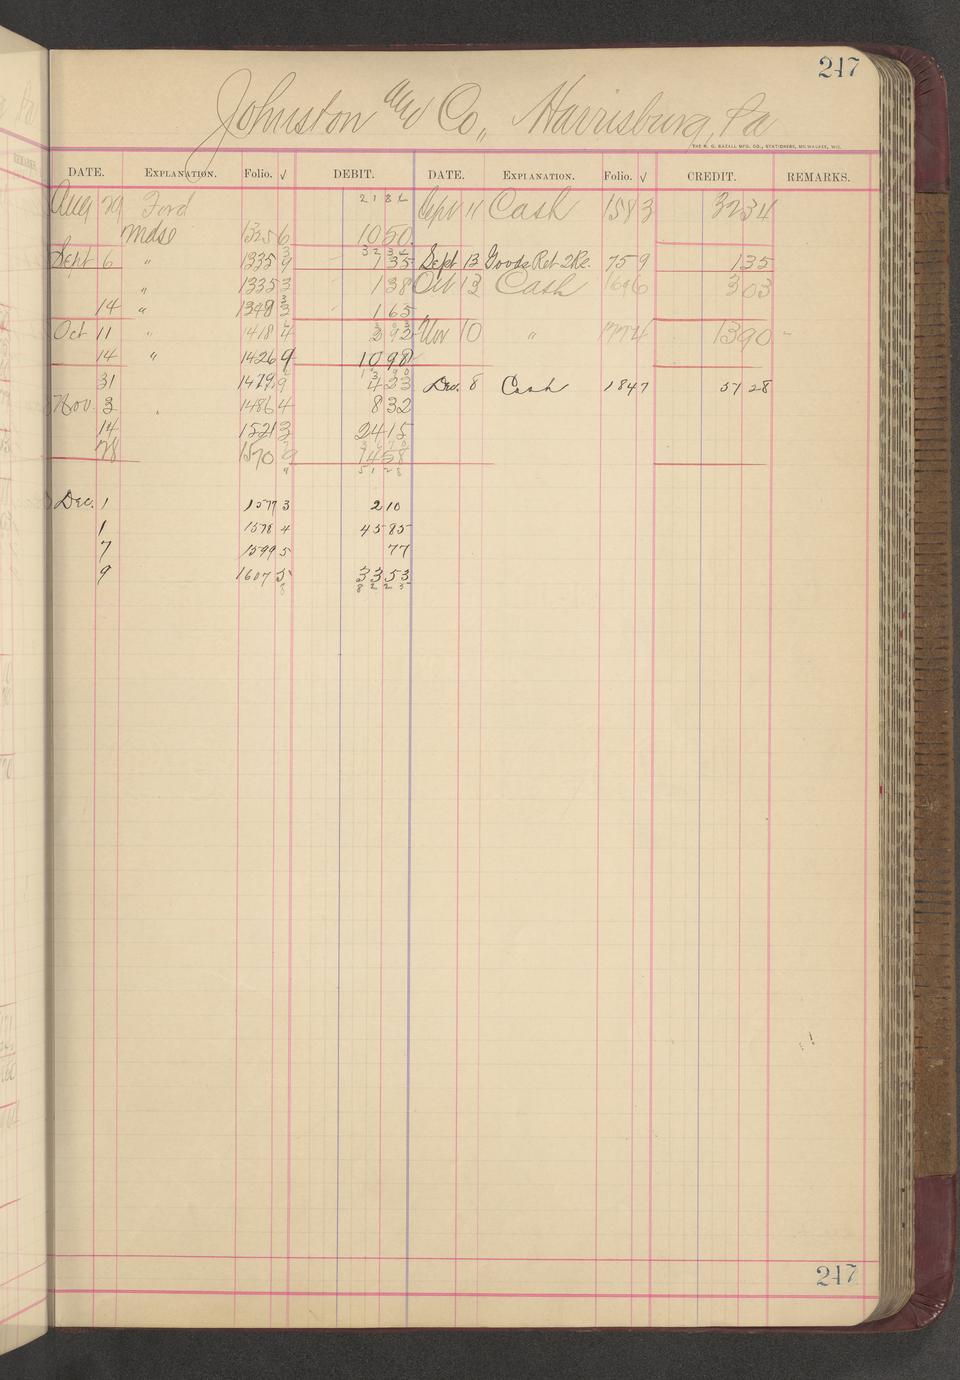 247
Johnston and Co., Harrisburg, Pa
THE H. G. RAZALL MFG. CO., STATIONERS, MILWAUKEE, WIS.
DATE. EXPLANATION. Folio. √ DEBIT. DATE. EXPLANATION. Folio. √ CREDIT. REMARKS.
Aug 29 Ford 21 84 Sept 11 Cash 1583 32 34
Mdse 1325 6 10 50
32 34
Sept 6 " 1335 9 1 35 Sept 13 Goods Ret 2Re. 759 1 35
" 1335 3 1 38 Oct 13 Cash 1696 3 03
14 " 1348 3 1 65
3 03
Oct 11 " 1418 4 2 92 Nov 10 " 1774 13 90
14 " 1426 9 10 98
13 90
31 1479 9 4 23 Dec. 8 Cash 1847 51 28
Nov. 3 " 1486 4 8 32
14 1521 3 24 15
28 1570 9 14 58
51 28
Dec. 1 1577 3 2 10
1 1578 4 45 85
7 1599 5 77
9 1607 5 33 53
8 82 25
247